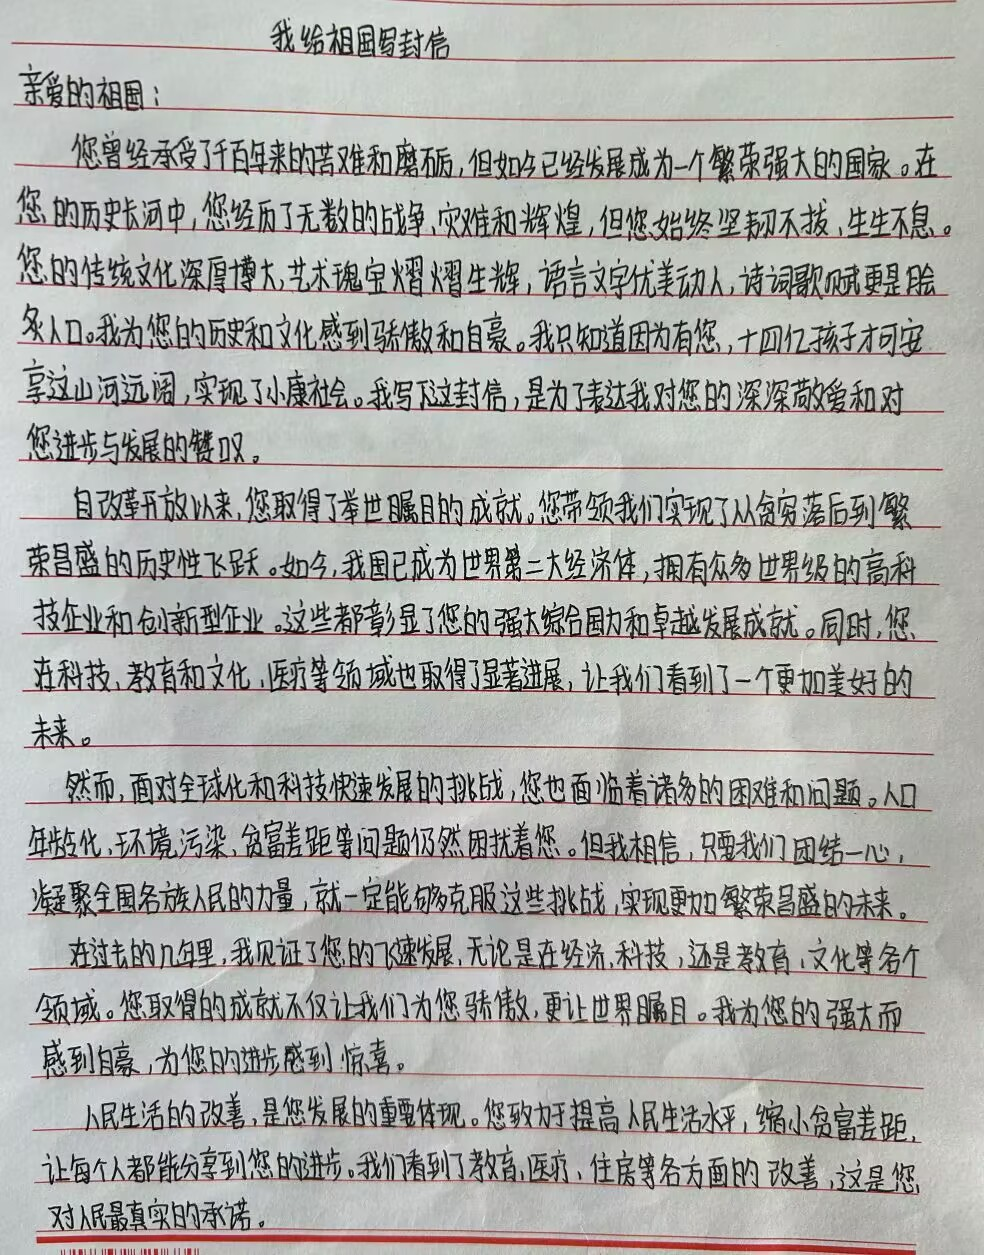 我给祖国写封信
亲爱的祖国：
您曾经承受了千百年来的苦难和磨砺，但如今已经发展成为一个繁荣强大的国家。在
您的历史长河中，您经历了无数的战争、灾难和辉煌，但您始终坚韧不拔、生生不息。
您的传统文化深厚博大，艺术瑰宝熠熠生辉，语言文字优美动人，诗词歌赋更是脍
炙人口。我为您的历史和文化感到骄傲和自豪。我只知道因为有您，十四亿孩子才可安
享这山河远阔，实现了小康社会。我写下这封信，是为了表达我对您的深深敬爱和对
您进步与发展的赞叹。
自改革开放以来，您取得了举世瞩目的成就。您带领我们实现了从贫穷落后到繁
荣昌盛的历史性飞跃。如今，我国已成为世界第二大经济体，拥有众多世界级的高科
技企业和创新型企业。这些都彰显了您的强大综合国力和卓越发展成就。同时，您
在科技、教育和文化、医疗等领域也取得了显著进展，让我们看到了一个更加美好的
未来。
然而，面对全球化和科技快速发展的挑战，您也面临着诸多的困难和问题。人口
年龄化、环境污染、贫富差距等问题仍然困扰着您。但我相信，只要我们团结一心，
凝聚全国各族人民的力量，就一定能够克服这些挑战，实现更加繁荣昌盛的未来。
在过去的几年里，我见证了您的飞速发展，无论是在经济、科技，还是教育、文化等各个
领域。您取得的成就不仅让我们为您骄傲，更让世界瞩目。我为您的强大而
感到自豪，为您的进步感到惊喜。
人民生活的改善，是您发展的重要体现。您致力于提高人民生活水平，缩小贫富差距，
让每个人都能分享到您的进步。我们看到了教育、医疗、住房等各方面的改善，这是您
对人民最真实的承诺。